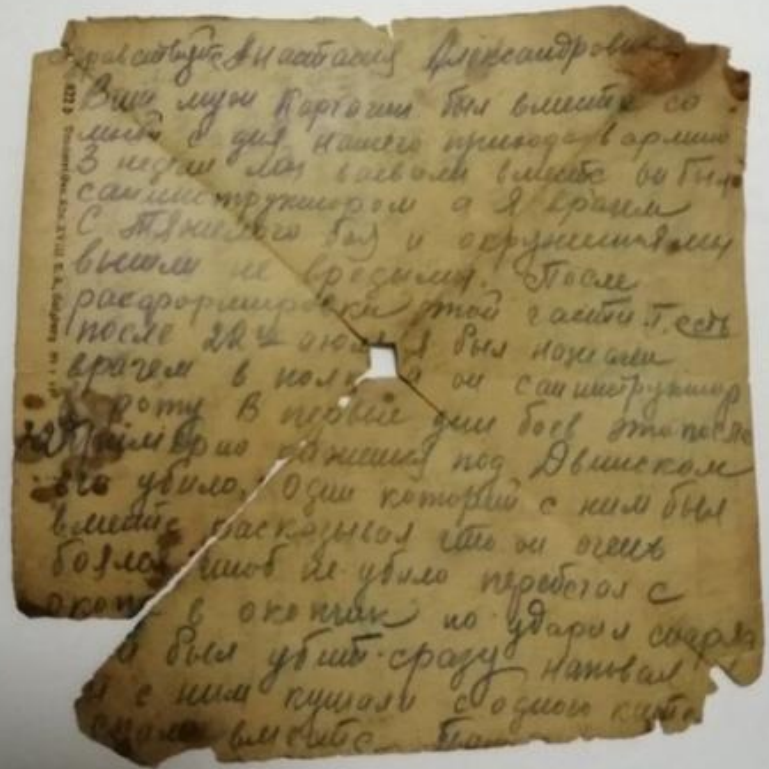 Здравствуйте Анастасия Александровна
Ваш муж Карташи был вместе со
мной с дня нашего прихода в армию
3 недели мы воевали вместе он был
санинструктором а я врачем
С тяжелого боя и окружения мы
вышли не вредимы. После
расформировки этой части т. есть
после 22 июля я был назначен
врачем в полк а он санинструктор
в роту В первые дни боев это после
22 Примерно кажется под Двинском
его убило. Один который с ним был
вместе расказывал что он очень
боялся чтоб не убило перебегал с
окопа в окопчик но ударил снаряд
й был убит сразу наповал
с ним кушали с одного
вместе